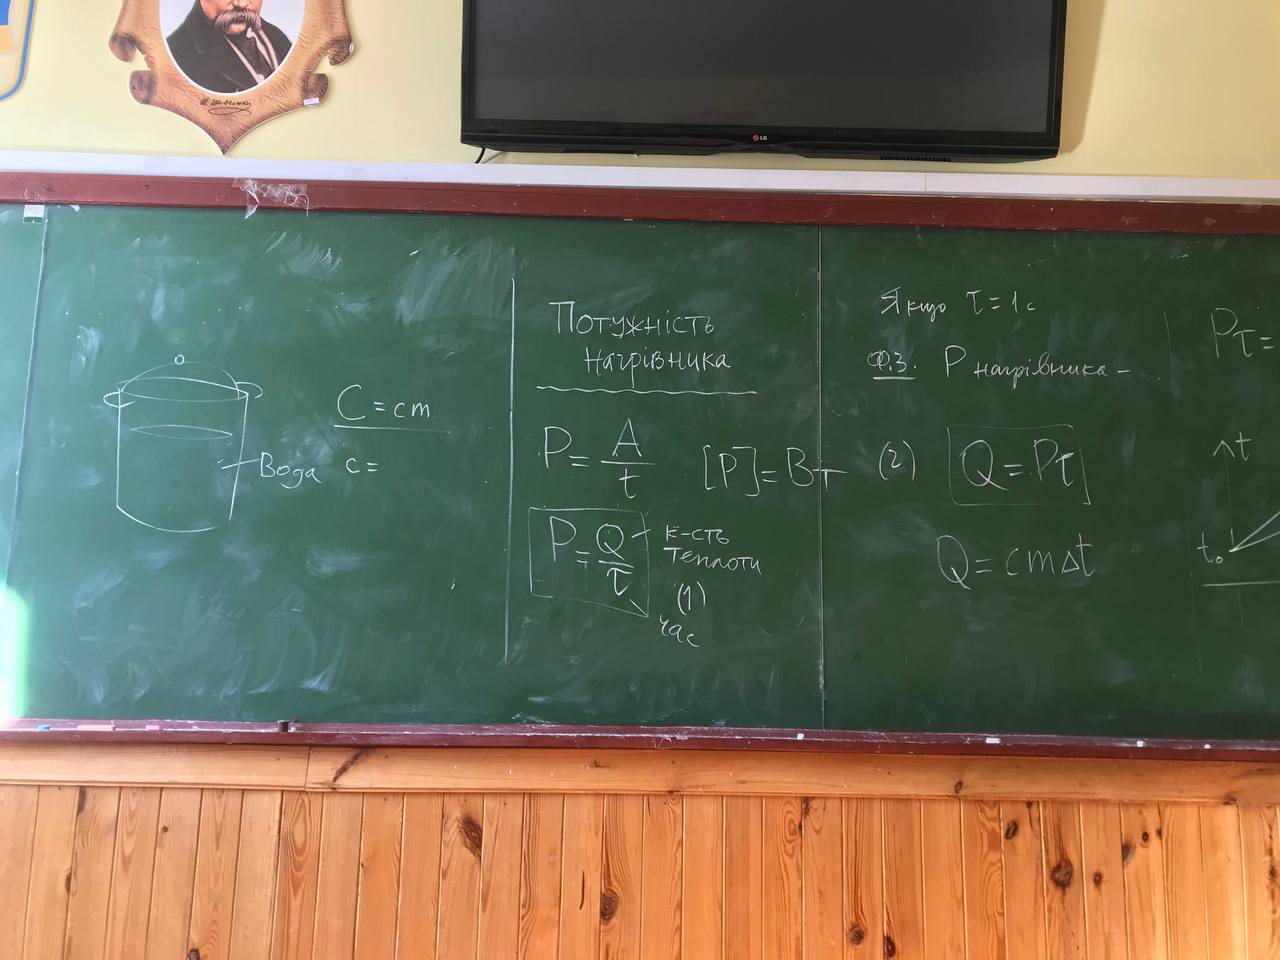 Т. Шевченко
LG
C = cm
c =
Вода
Потужність
нагрівника
P = A/t
[P] = Вт
P = Q/τ
к-сть
теплоти
(1)
час
Якщо τ = 1 с
Ф.З. P нагрівника –
(2) Q = Pτ
Q = cmΔt
Pτ =
t
t₀